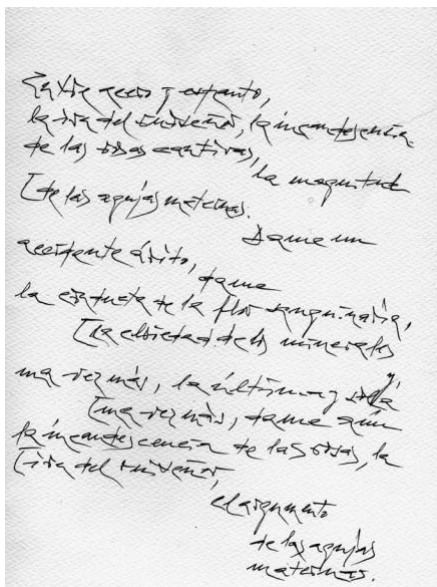 Entre acero y espanto,
la ira del ruiseñor, la incandescencia
de las osas cautivas,
la magnitud
de las agujas maternas.
Dame un
accidente ávido, dame
la astucia de la flor sanguinaria,
la ebriedad de los minerales
una vez más, la última y
una vez más, dame aún
la incandescencia de las osas, la
ira del ruiseñor,
el argumento
de las agujas
maternas.